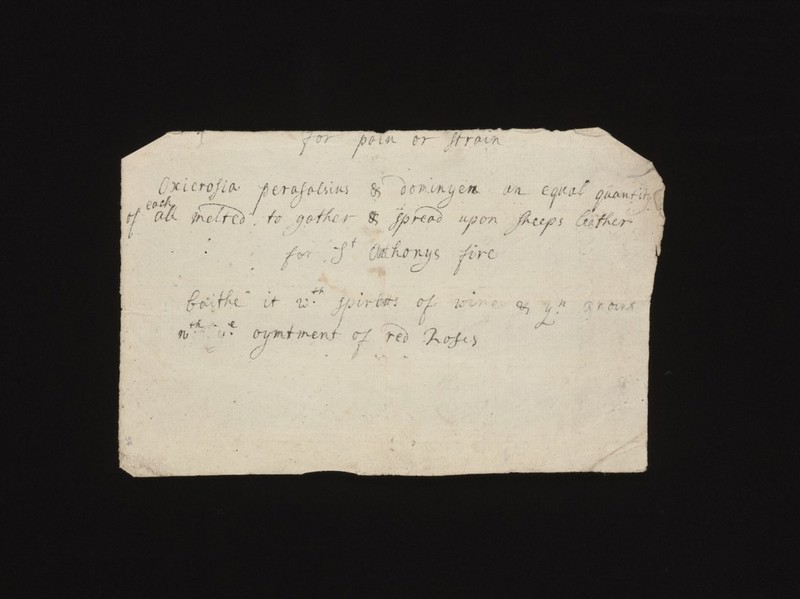 for pain or strain
Oxicrosia perasalsius & dominyen an equal quantity
of each all melted to gather & spread upon sheeps leather
for St Anthonys fire
baithe it wth spirits of wine & yn
wth ye oymtment of red Roses